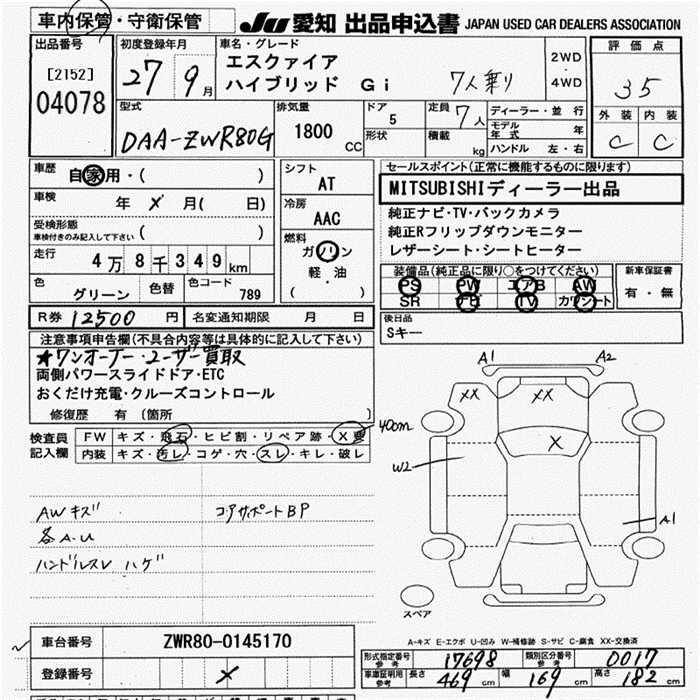 車内保管・守衛保管
JU 愛知 出品申込書 JAPAN USED CAR DEALERS ASSOCIATION
出品番号
[2152]
04078
初度登録年月
27 9月
車名・グレード
エスクァイア
ハイブリッド Gi 7人乗り
2WD
・
4WD
評価点
3.5
外装 内装
C C
型式
DAA-ZWR80G
排気量
1800 CC
ドア
5
形状
定員
7人
積載 kg
ディーラー・並行
モデル年式 年
ハンドル 左・右
車歴 自家用・( )
車検 年 X 月( 日)
受検形態
車検付きのみ記入して下さい ( )
走行 4万8千349km
色 グリーン 色替 色コード 789
シフト
AT
冷房
AAC
燃料
ガソリン
軽・油
( )
セールスポイント(正常に機能するものに限ります)
MITSUBISHIディーラー出品
純正ナビ・TV・バックカメラ
純正Rフリップダウンモニター
レザーシート・シートヒーター
装備品(純正品に限り○をつけてください)
PS PW エアB AW
SR ナビ TV カワシート
新車保証書
有・無
R券 12500 円 名変通知期限 月 日
後日品
Sキー
注意事項申告欄(不具合内容等は具体的に記入して下さい)
★ワンオーナー・ユーザー買取
両側パワースライドドア・ETC
おくだけ充電・クルーズコントロール
修復歴 有 〔箇所 〕
検査員記入欄
FW キズ・飛石・ヒビ割・リペア跡・X要
内装 キズ・汚レ・コゲ・穴・スレ・キレ・破レ
40cm
AWキズ コアサポートBP
各A.U
ハンドルスレ ハゲ
A1 A2
XX XX
X
W2
A1
スペア
A-キズ E-エクボ U-凹み W-補修跡 S-サビ C-腐食 XX-交換済
車台番号 ZWR80-0145170
登録番号 X
形式指定番号 参考 17698 類別区分番号 参考 0017
車庫証明用 参考 長さ 469cm 幅 169cm 高さ 182cm